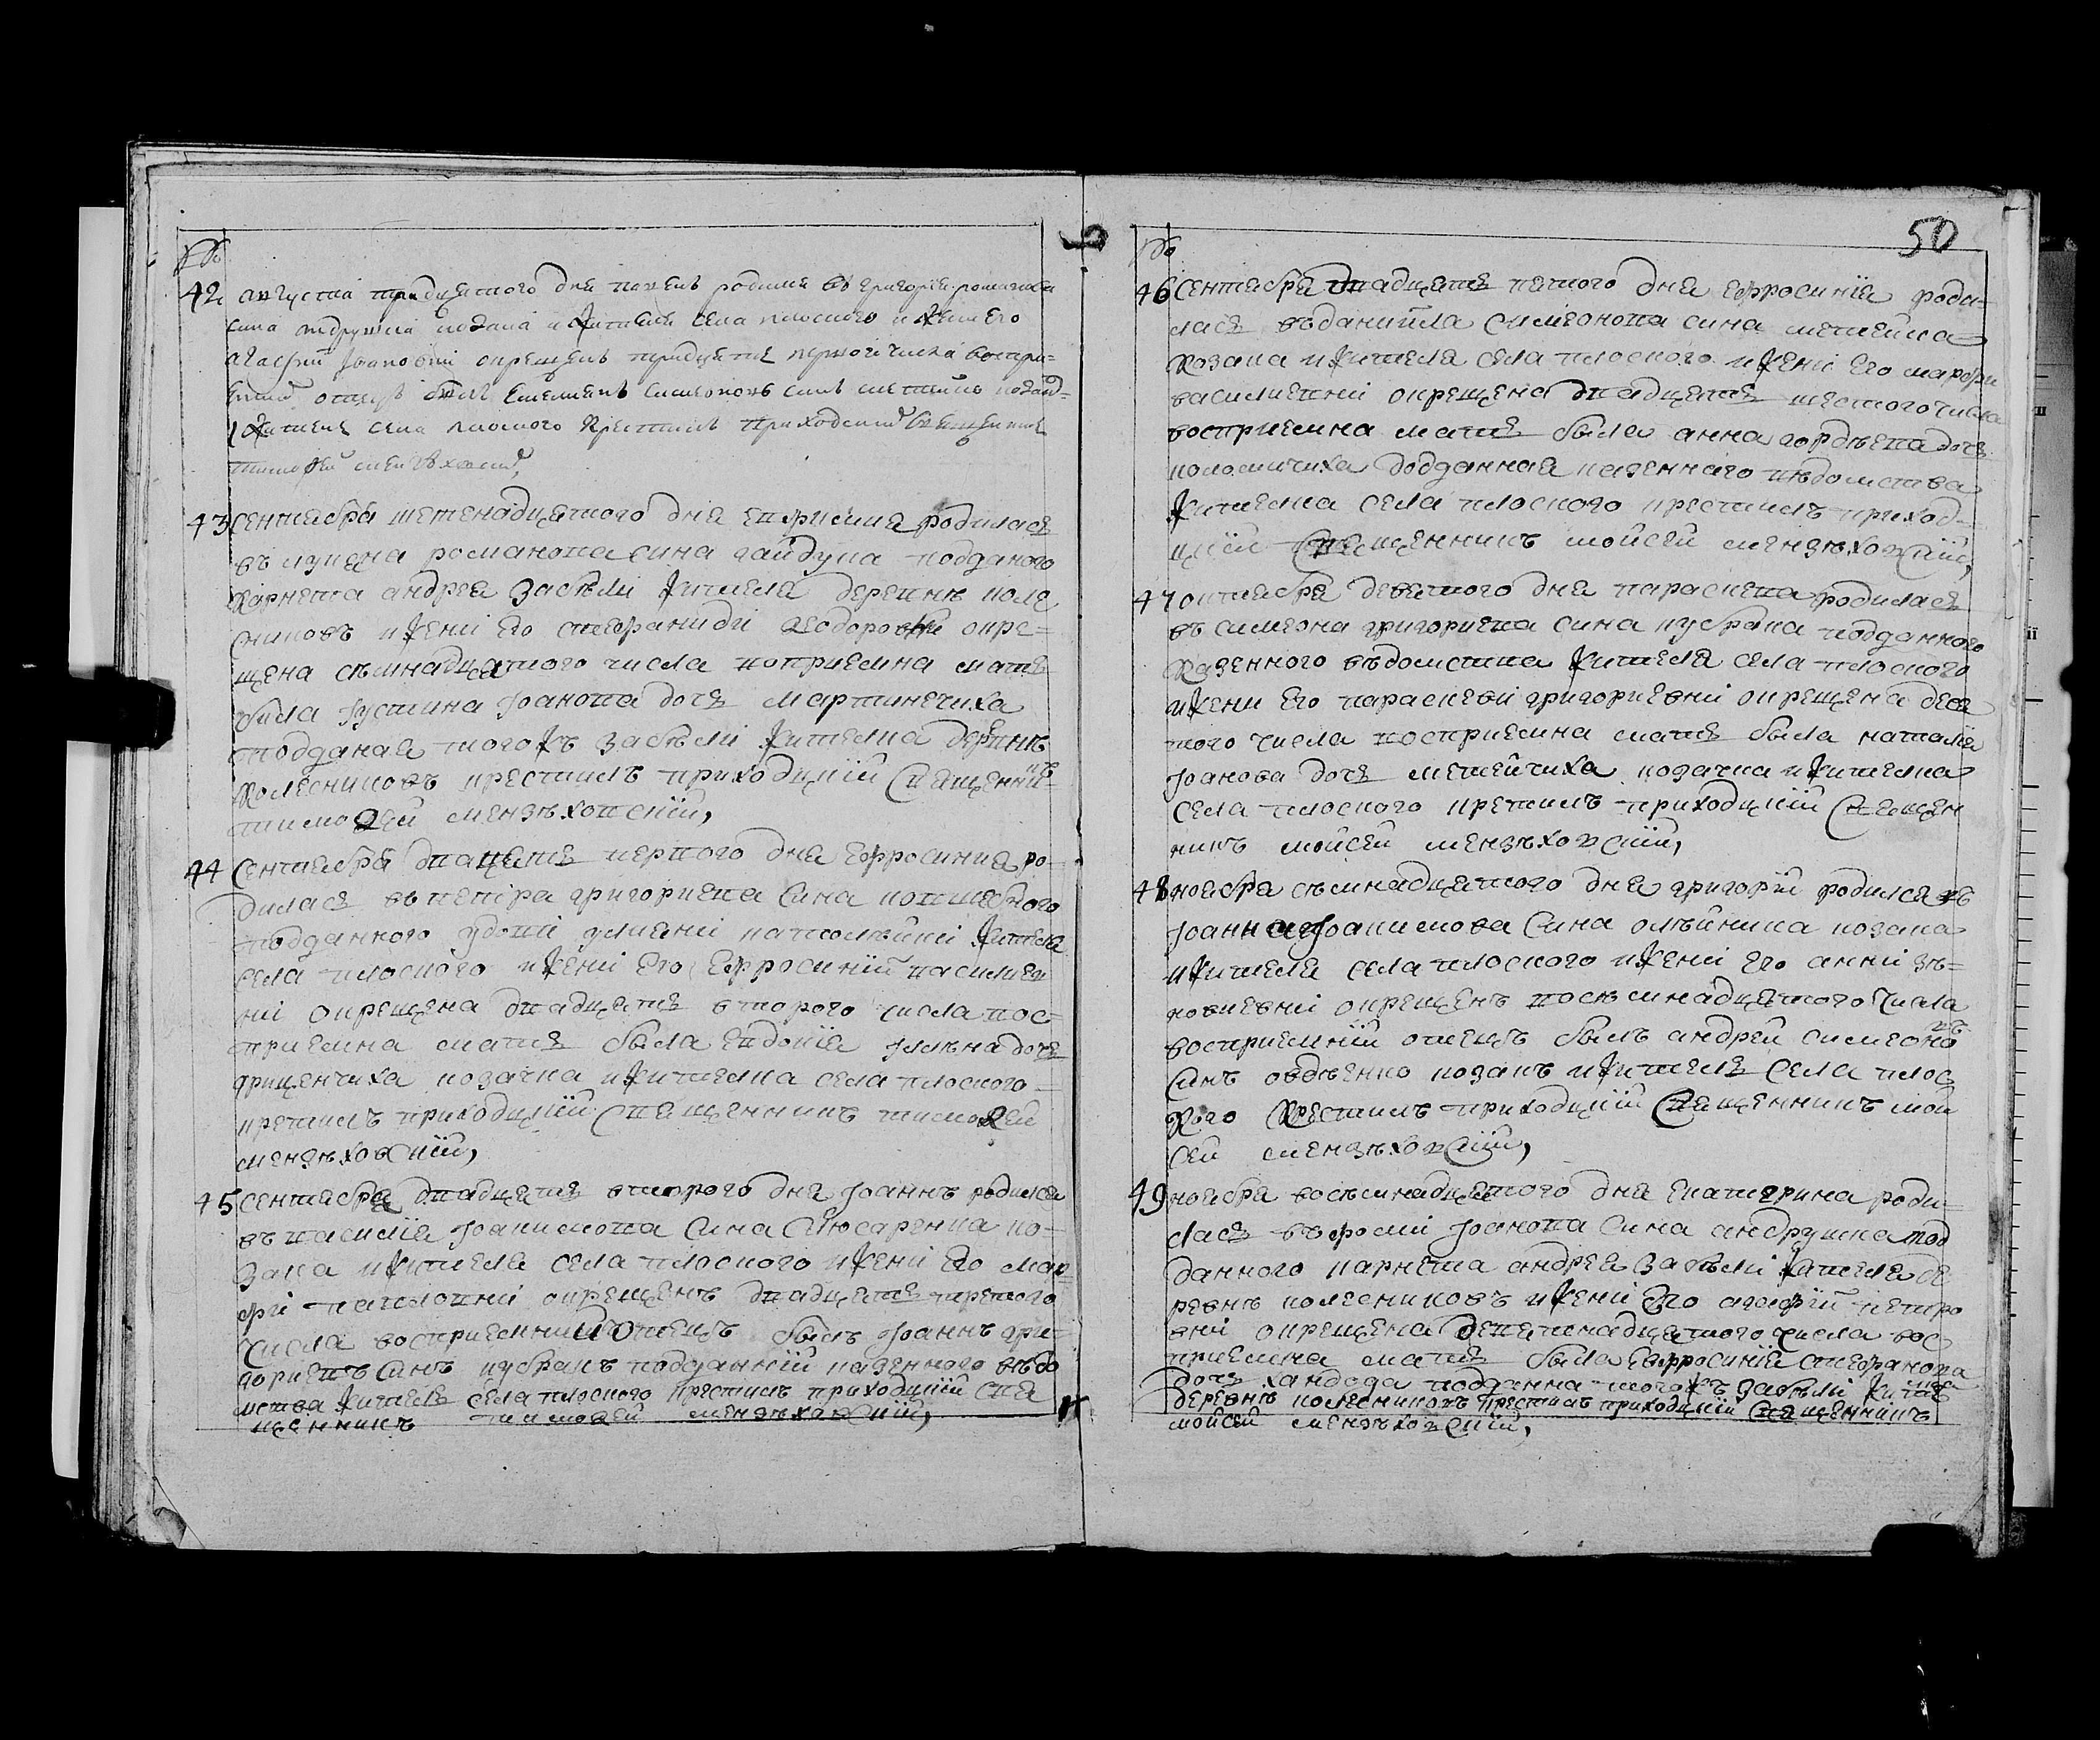 №
42 августа тридцятого дня родился въ григорія романова
сина андрушка козака и жителя села плоского и жени его
агафіи Івановни окрещенъ тридцять первого числа воспри-
емний отецъ билъ Симеоновъ синъ козакъ
и житель села плоского крестилъ приходский священникъ
тимофей
43 сентября шетенадцятого дня родилася
въ луцина романова сина гайдука подданого
карнета андрея забѣли жителя деревнѣ коле
сниковъ и жени его стефаниди Ѳеодоровни окре=
щена сѣмнадцятого числа воприемна матие
била Іустина Іоанова дочь мартинечиха
подданая того жъ забѣли жителка деревнѣ
колесниковъ крестилъ приходцкій священникъ
тимоѲей мензѣховский,
44 сентября двацать первого дня ефросиния ро-
дилася въ петра григориева сина
подданного удовіи улияни жителя
села плоского и жени его Ефросинііи василиев
ни окрещена двадцять второго числа вос-
приемна матие била Евдокія дочь
гриценчиха козачка и жителка села плоского-
кретилъ приходцкій священникъ тимоѲей
мензѣховскій,
45 сентября двадцять второго дня Іоаннъ родился
въ василія Іоакимова сина слюсаренка ко-
зака и жителя села плоского и жени его мар
фи павловни окрещенъ двадцять третого
числа восприемний отецъ билъ Іоаннъ гри-
гориевъ синъ кубракъ подданній казенного вѣдо
мства житель села плоского крестилъ приходцкій свя
щенникъ тимоѲей мензѣховскій,
50
№
46 Сентября двадцять пятого дня ефросинія роди-
лася въ данийла симеонова сина метейка
козака и жителя села плоского и жени его марфи
василиевни окрещена двадцять шестого числа
восприемна матие била анна гордѣева дочь
коломийчиха подданная казенного вѣдомства
жителка села плоского крестилъ приход-
цкій священникъ мойсей мензѣховскій,
47 октября девятого дня параскева родилася
въ симеона григориева сина кубрака подданного
казенного вѣдомства жителя села плоского
и жени его параскевіи григориевни окрещена деся
того числа восприемна матие била наталія
Іоанова дочь метейчиха козачка и жителка
села плоского кретилъ приходцкій священ
никъ мойсей мензѣховскій,
48 ноября сѣмнадцятого дня григорій родился въ
Іоанна Іоакимова сина олѣйника козака
и жителя села плоского и жени его анни зѣ=
новиевни окрещенъ восѣмнадцятого числа
восприемній отецъ билъ андрей симеоновъ
синъ овдѣенко козакъ и житель села плос
кого крестилъ приходцкій священникъ мой
сей мензѣховскій,
49 ноября восѣмнадцятого дня Екатерина роди-
лася въ фоми Іоанова сина андрушка под
данного карнета андрея забѣли жителя де
ревнѣ колесниковъ и жени его агафіи петро
вни окрещена девятенадцятого числа вос
приемна матие била Евфросинія стефанова
дочь хандога подданна того жъ забѣли жителка
деревнѣ колесниковъ крестилъ приходцкій священникъ
мойсей мензѣховскій,